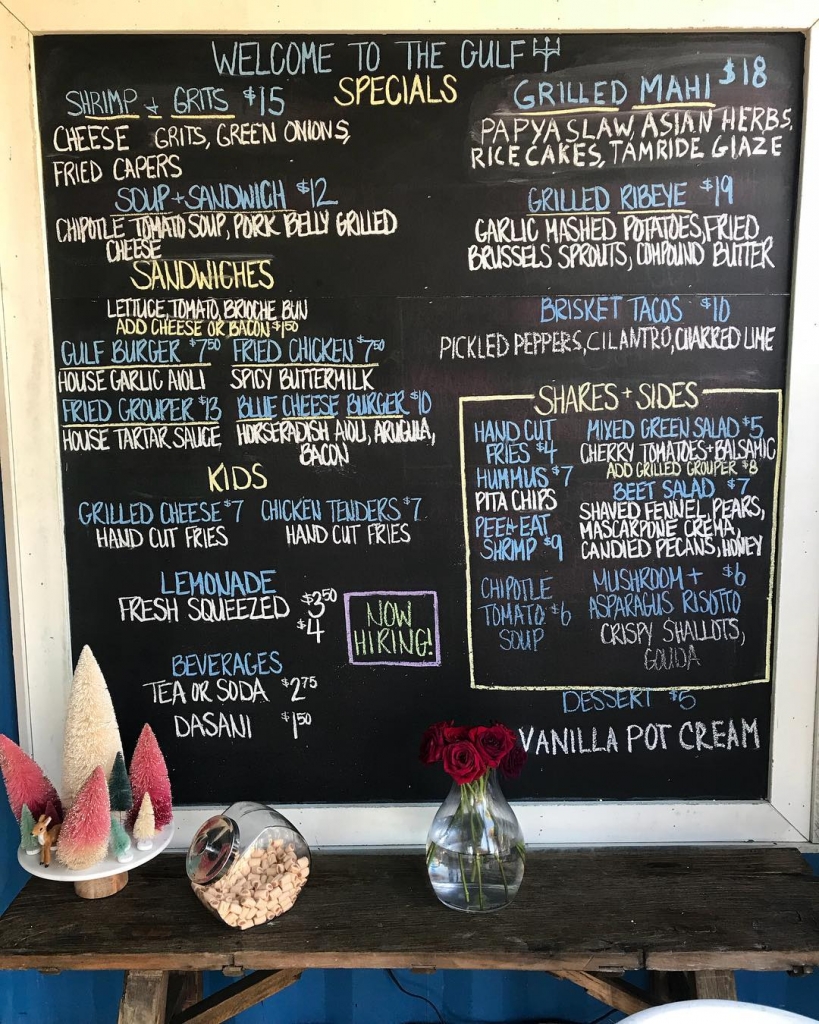 WELCOME TO THE GULF
SPECIALS
SHRIMP + GRITS $15
CHEESE GRITS, GREEN ONIONS,
FRIED CAPERS
SOUP + SANDWICH $12
CHIPOTLE TOMATO SOUP, PORK BELLY GRILLED
CHEESE
GRILLED MAHI $18
PAPYA SLAW, ASIAN HERBS,
RICE CAKES, TAMRIDE GLAZE
GRILLED RIBEYE $19
GARLIC MASHED POTATOES, FRIED
BRUSSELS SPROUTS, COMPOUND BUTTER
BRISKET TACOS $10
PICKLED PEPPERS, CILANTRO, CHARRED LIME
SANDWICHES
LETTUCE, TOMATO, BRIOCHE BUN
ADD CHEESE OR BACON $1.50
GULF BURGER $7.50
HOUSE GARLIC AIOLI
FRIED CHICKEN $7.50
SPICY BUTTERMILK
FRIED GROUPER $13
HOUSE TARTAR SAUCE
BLUE CHEESE BURGER $10
HORSERADISH AIOLI, ARUGULA,
BACON
KIDS
GRILLED CHEESE $7
HAND CUT FRIES
CHICKEN TENDERS $7
HAND CUT FRIES
LEMONADE
FRESH SQUEEZED $3.50
$4
NOW
HIRING!
BEVERAGES
TEA OR SODA $2.75
DASANI $1.50
SHARES + SIDES
HAND CUT
FRIES $4
HUMMUS $7
PITA CHIPS
PEEL+EAT
SHRIMP $9
CHIPOTLE
TOMATO $6
SOUP
MIXED GREEN SALAD $5
CHERRY TOMATOES + BALSAMIC
ADD GRILLED GROUPER $8
BEET SALAD $7
SHAVED FENNEL, PEARS,
MASCARPONE CREMA,
CANDIED PECANS, HONEY
MUSHROOM + $6
ASPARAGUS RISOTTO
CRISPY SHALLOTS,
GOUDA
DESSERT $5
VANILLA POT CREAM